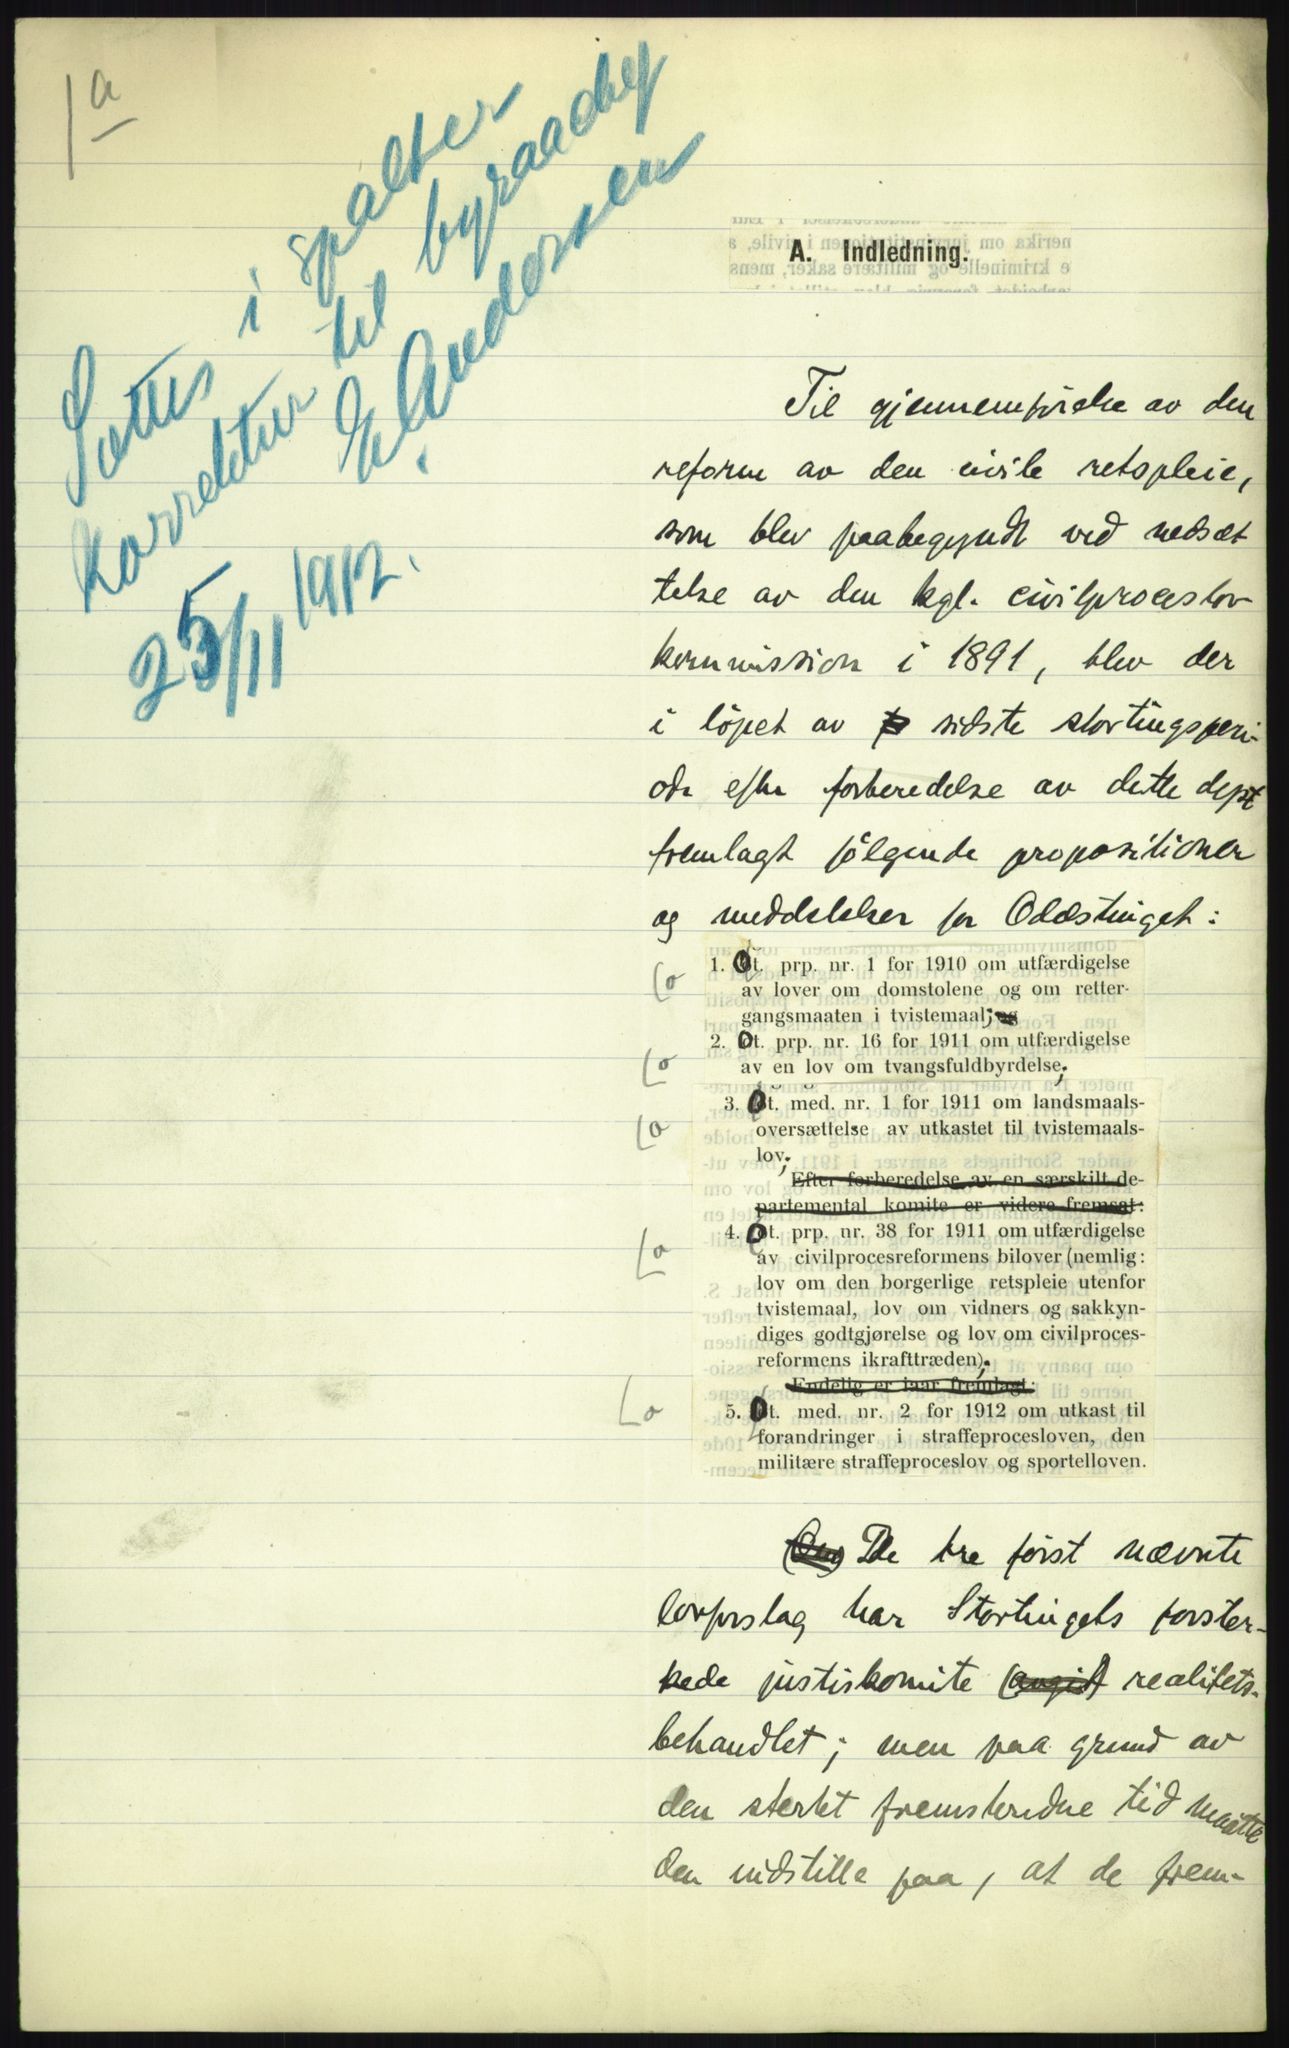 1a
Sættes i spalter
Korrektur til byraachef
E. Andersen
25/11 1912.
A. Indledning.
Til gjennemførelse av den
reform av den civile retspleie,
som blev paabegyndt ved nedsæt
telse av den kgl. civilproceslov
kommission i 1891, blev der
i löpet av sidste stortingsperi-
ode efter forberedelse av dette dept
fremlagt følgende propositioner
og meddelelser for Odelstinget:
1. Ot. prp. nr. 1 for 1910 om utfærdigelse
av lover om domstolene og om retter-
gangsmaaten i tvistemaal; og
2. Ot. prp. nr. 16 for 1911 om utfærdigelse
av en lov om tvangsfuldbyrdelse;
3. Ot. med. nr. 1 for 1911 om landsmaals-
oversættelse av utkastet til tvistemaals-
lov;
Efter forberedelse av en særskilt de-
partemental komite er videre fremsat:
4. Ot. prp. nr. 38 for 1911 om utfærdigelse
av civilprocesreformens bilover (nemlig:
lov om den borgerlige retspleie utenfor
tvistemaal, lov om vidners og sakkyn-
diges godtgjørelse og lov om civilproces-
reformens ikrafttræden);
Endelig er iaar fremlagt:
5. Ot. med. nr. 2 for 1912 om utkast til
forandringer i straffeprocesloven, den
militære straffeproceslov og sportelloven.
De tre först nævnte
lovforslag har Stortingets forster-
kede justiskomite (avgit) realitets-
behandlet; men paa grund av
den sterkt fremskredne tid maatte
den indstille paa, at de frem-